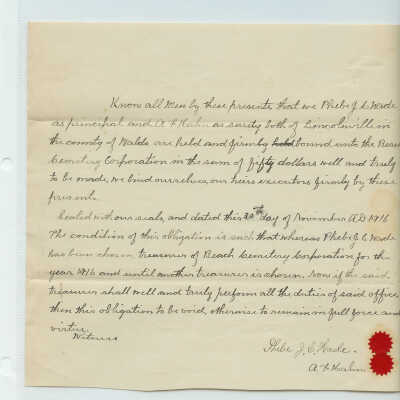 Know all Men by these presents that we Phebe J. C. Wade
as principal and A F Hahn as surity both of Lincolnville in
the county of Waldo are held and firmly held bound unto the Beach
Cemetery Corporation in the sum of fifty dollars well and truly
to be made, we bind ourselves, our heirs executors firmly by these
presents.
Sealed with our seals, and dated this 20th day of November A.D. 1916
The condition of this obligation is such that whereas Phebe J. C. Wade
has been chosen treasurer of Beach Cemetery Corporation for the
year 1916 and until another treasurer is chosen. Now if the said
treasurer shall well and truly perform all the duties of said office
then this obligation to be void, otherwise to remain in full force and
virtue.
Witness
Phebe J. C. Wade.
A F Hahn